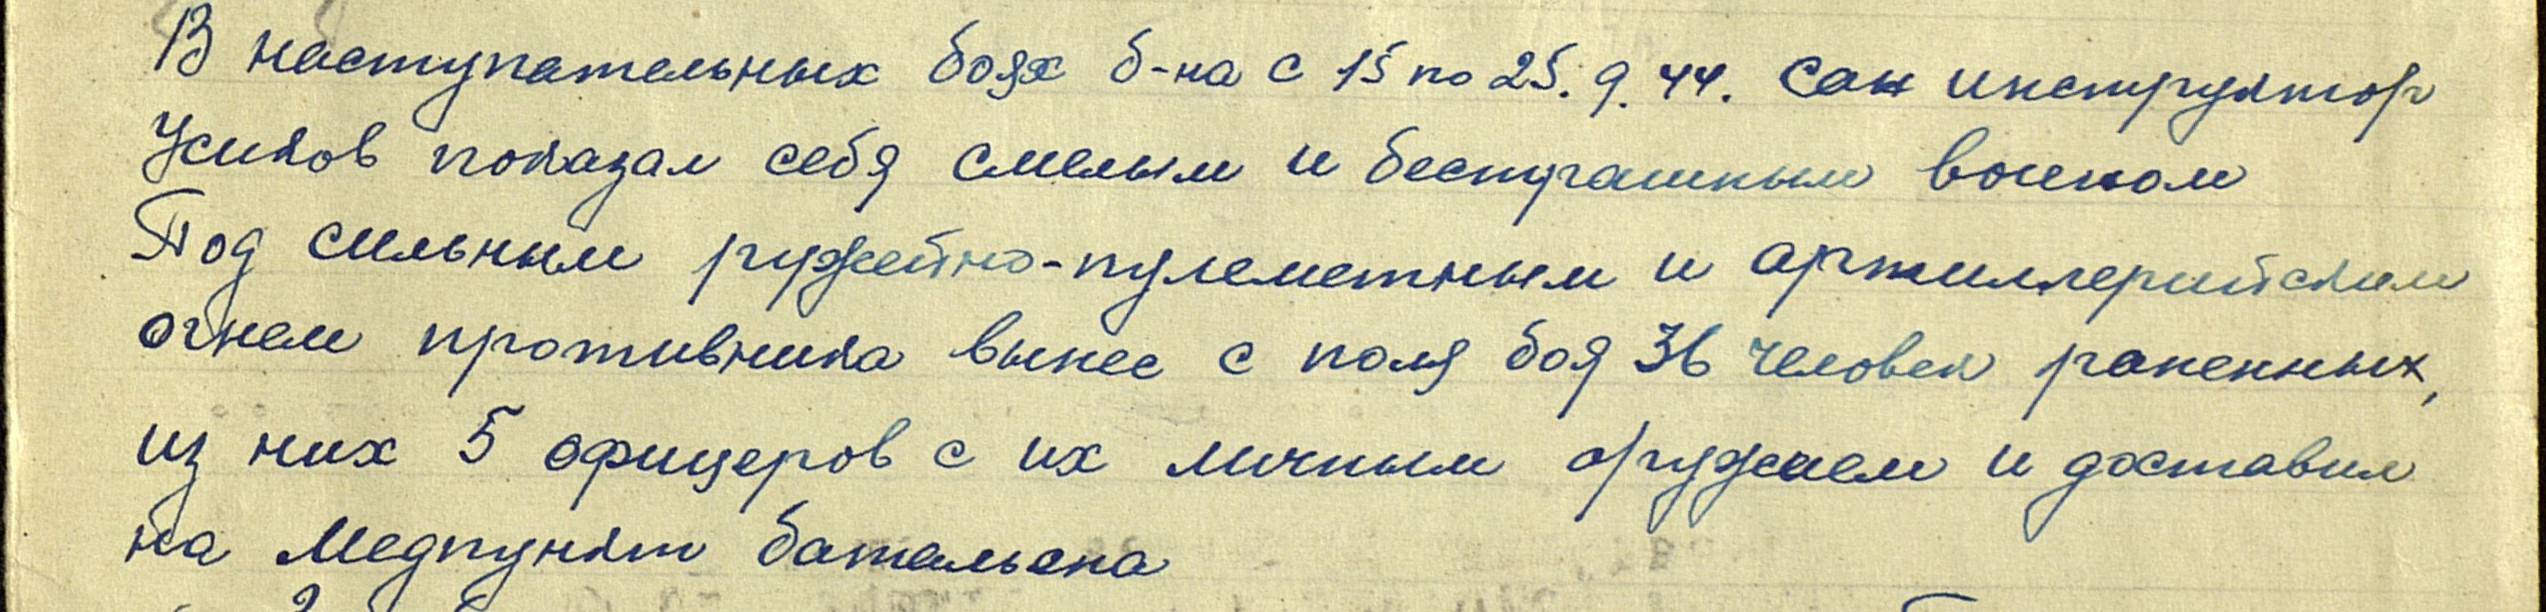 В наступательных боях б-на с 15 по 25.9.44. сан инструктор
Усиков показал себя смелым и бесстрашным воеком
Под сильным ружейно-пулеметным и артиллерийским
огнем противника вынес с поля боя 36 человек раненных,
из них 5 офицеров с их личным оружием и доставил
на Медпункт батальена